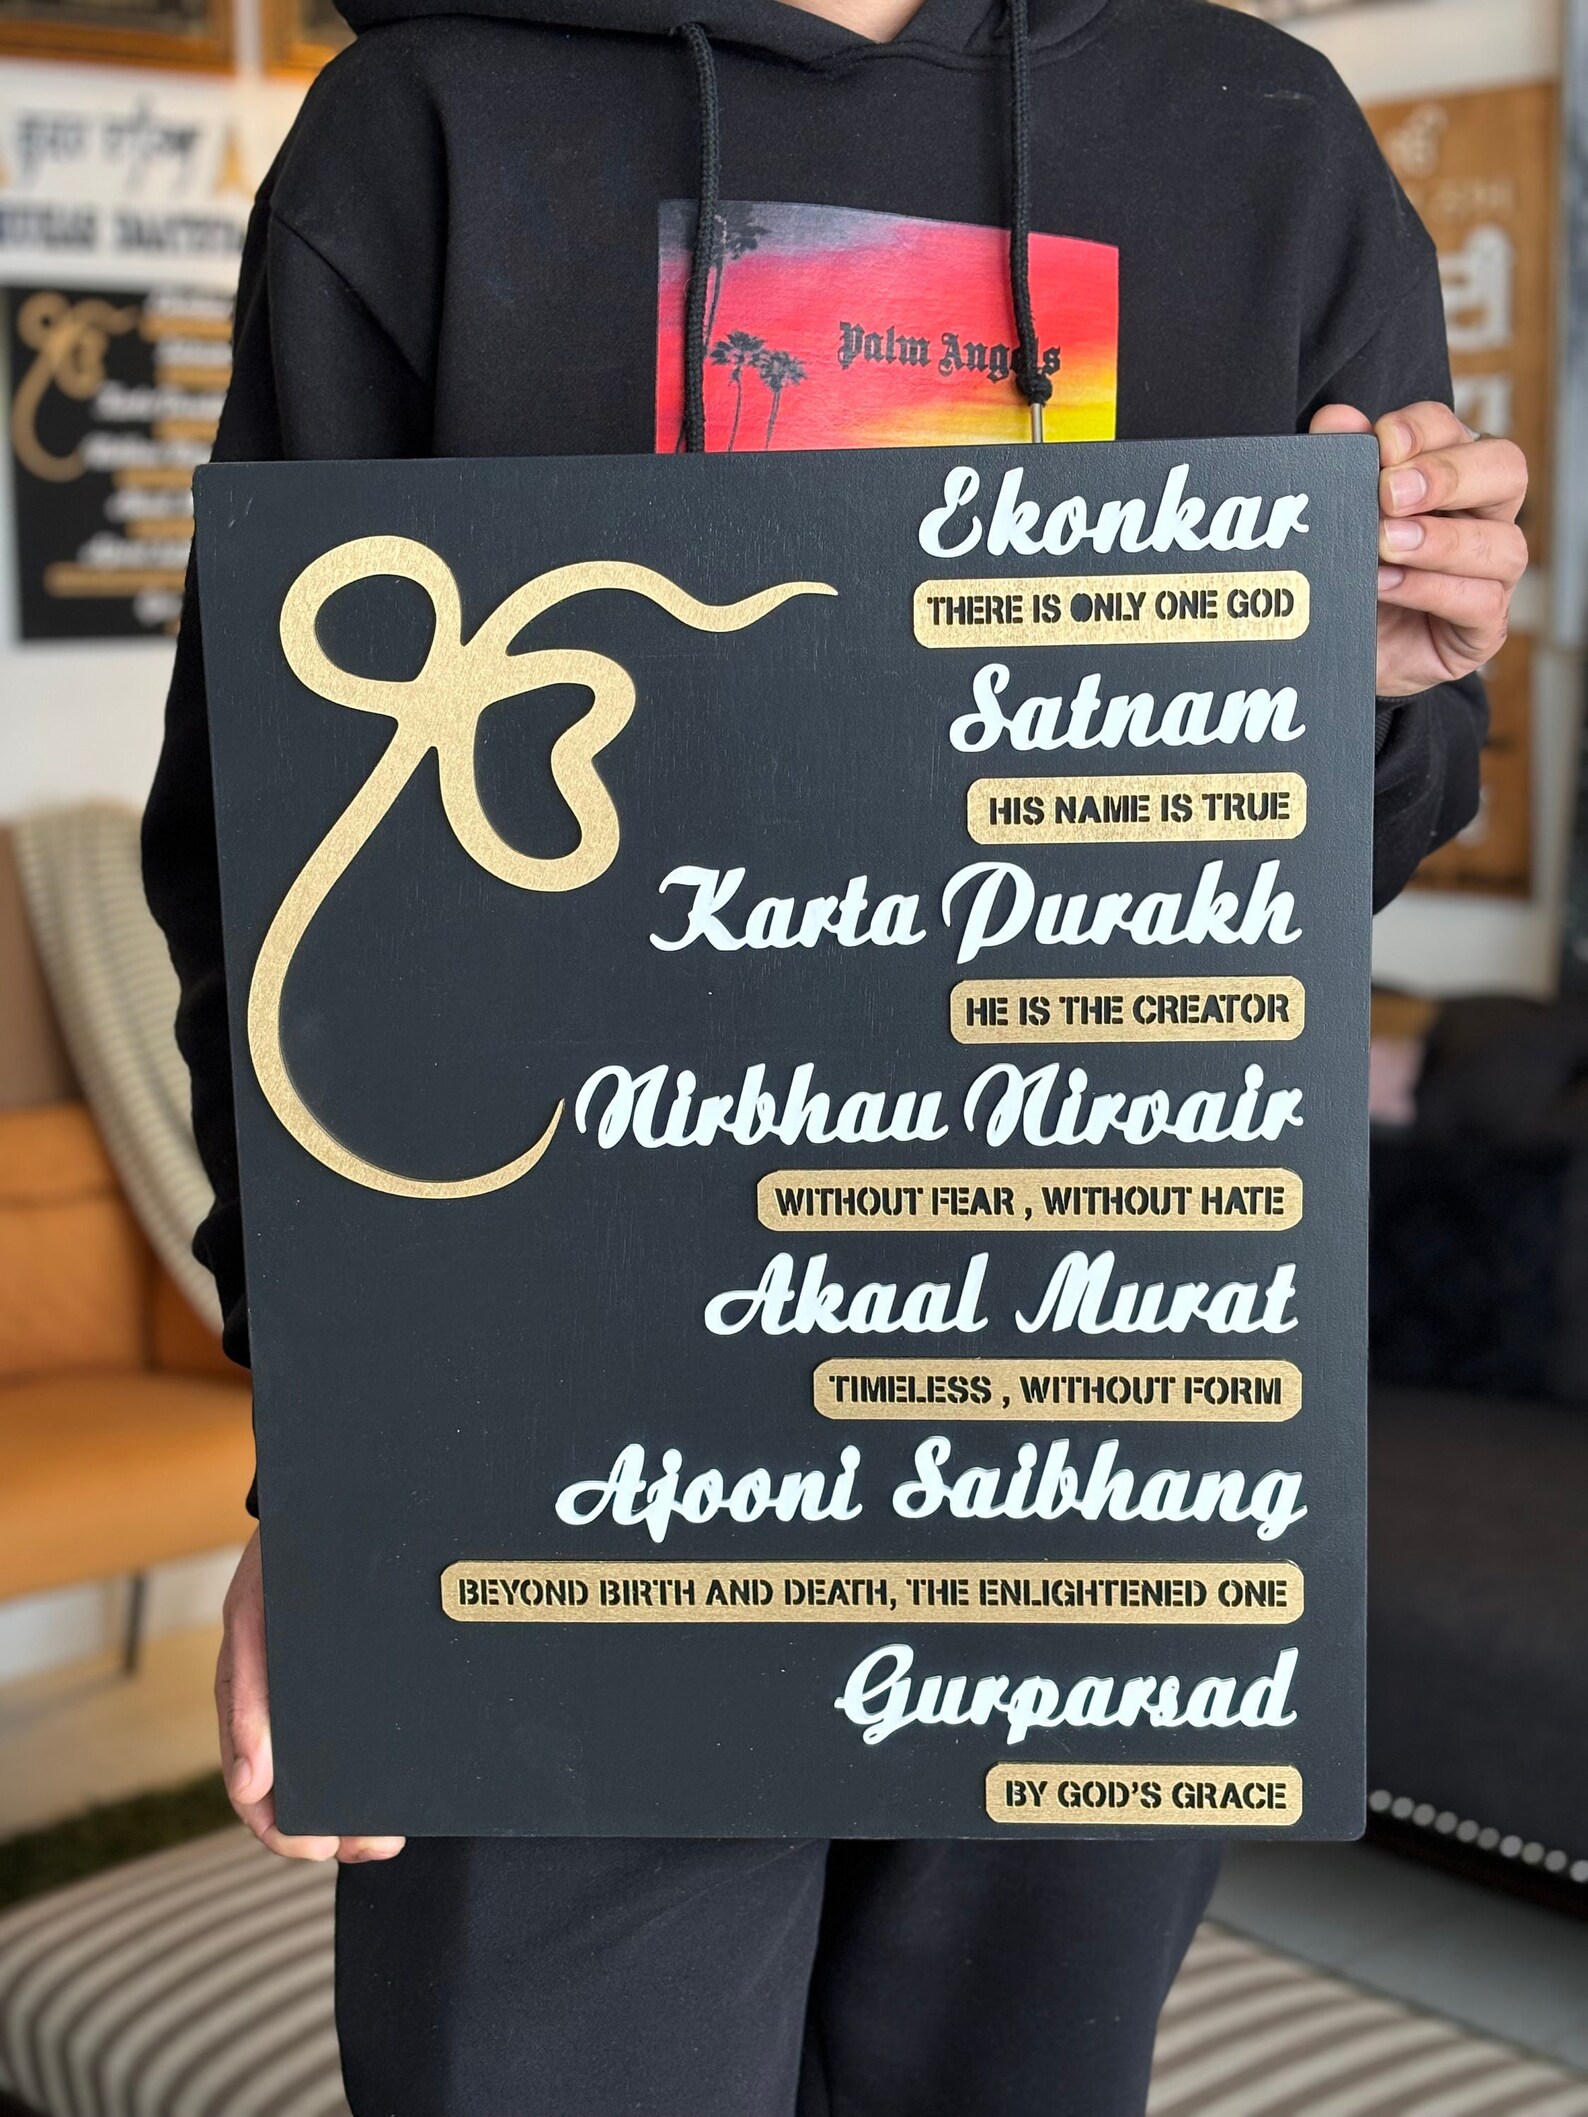 Palm Angels
ੴ
Ekonkar
THERE IS ONLY ONE GOD
Satnam
HIS NAME IS TRUE
Karta Purakh
HE IS THE CREATOR
Nirbhau Nirvair
WITHOUT FEAR , WITHOUT HATE
Akaal Murat
TIMELESS , WITHOUT FORM
Ajooni Saibhang
BEYOND BIRTH AND DEATH, THE ENLIGHTENED ONE
Gurparsad
BY GOD'S GRACE